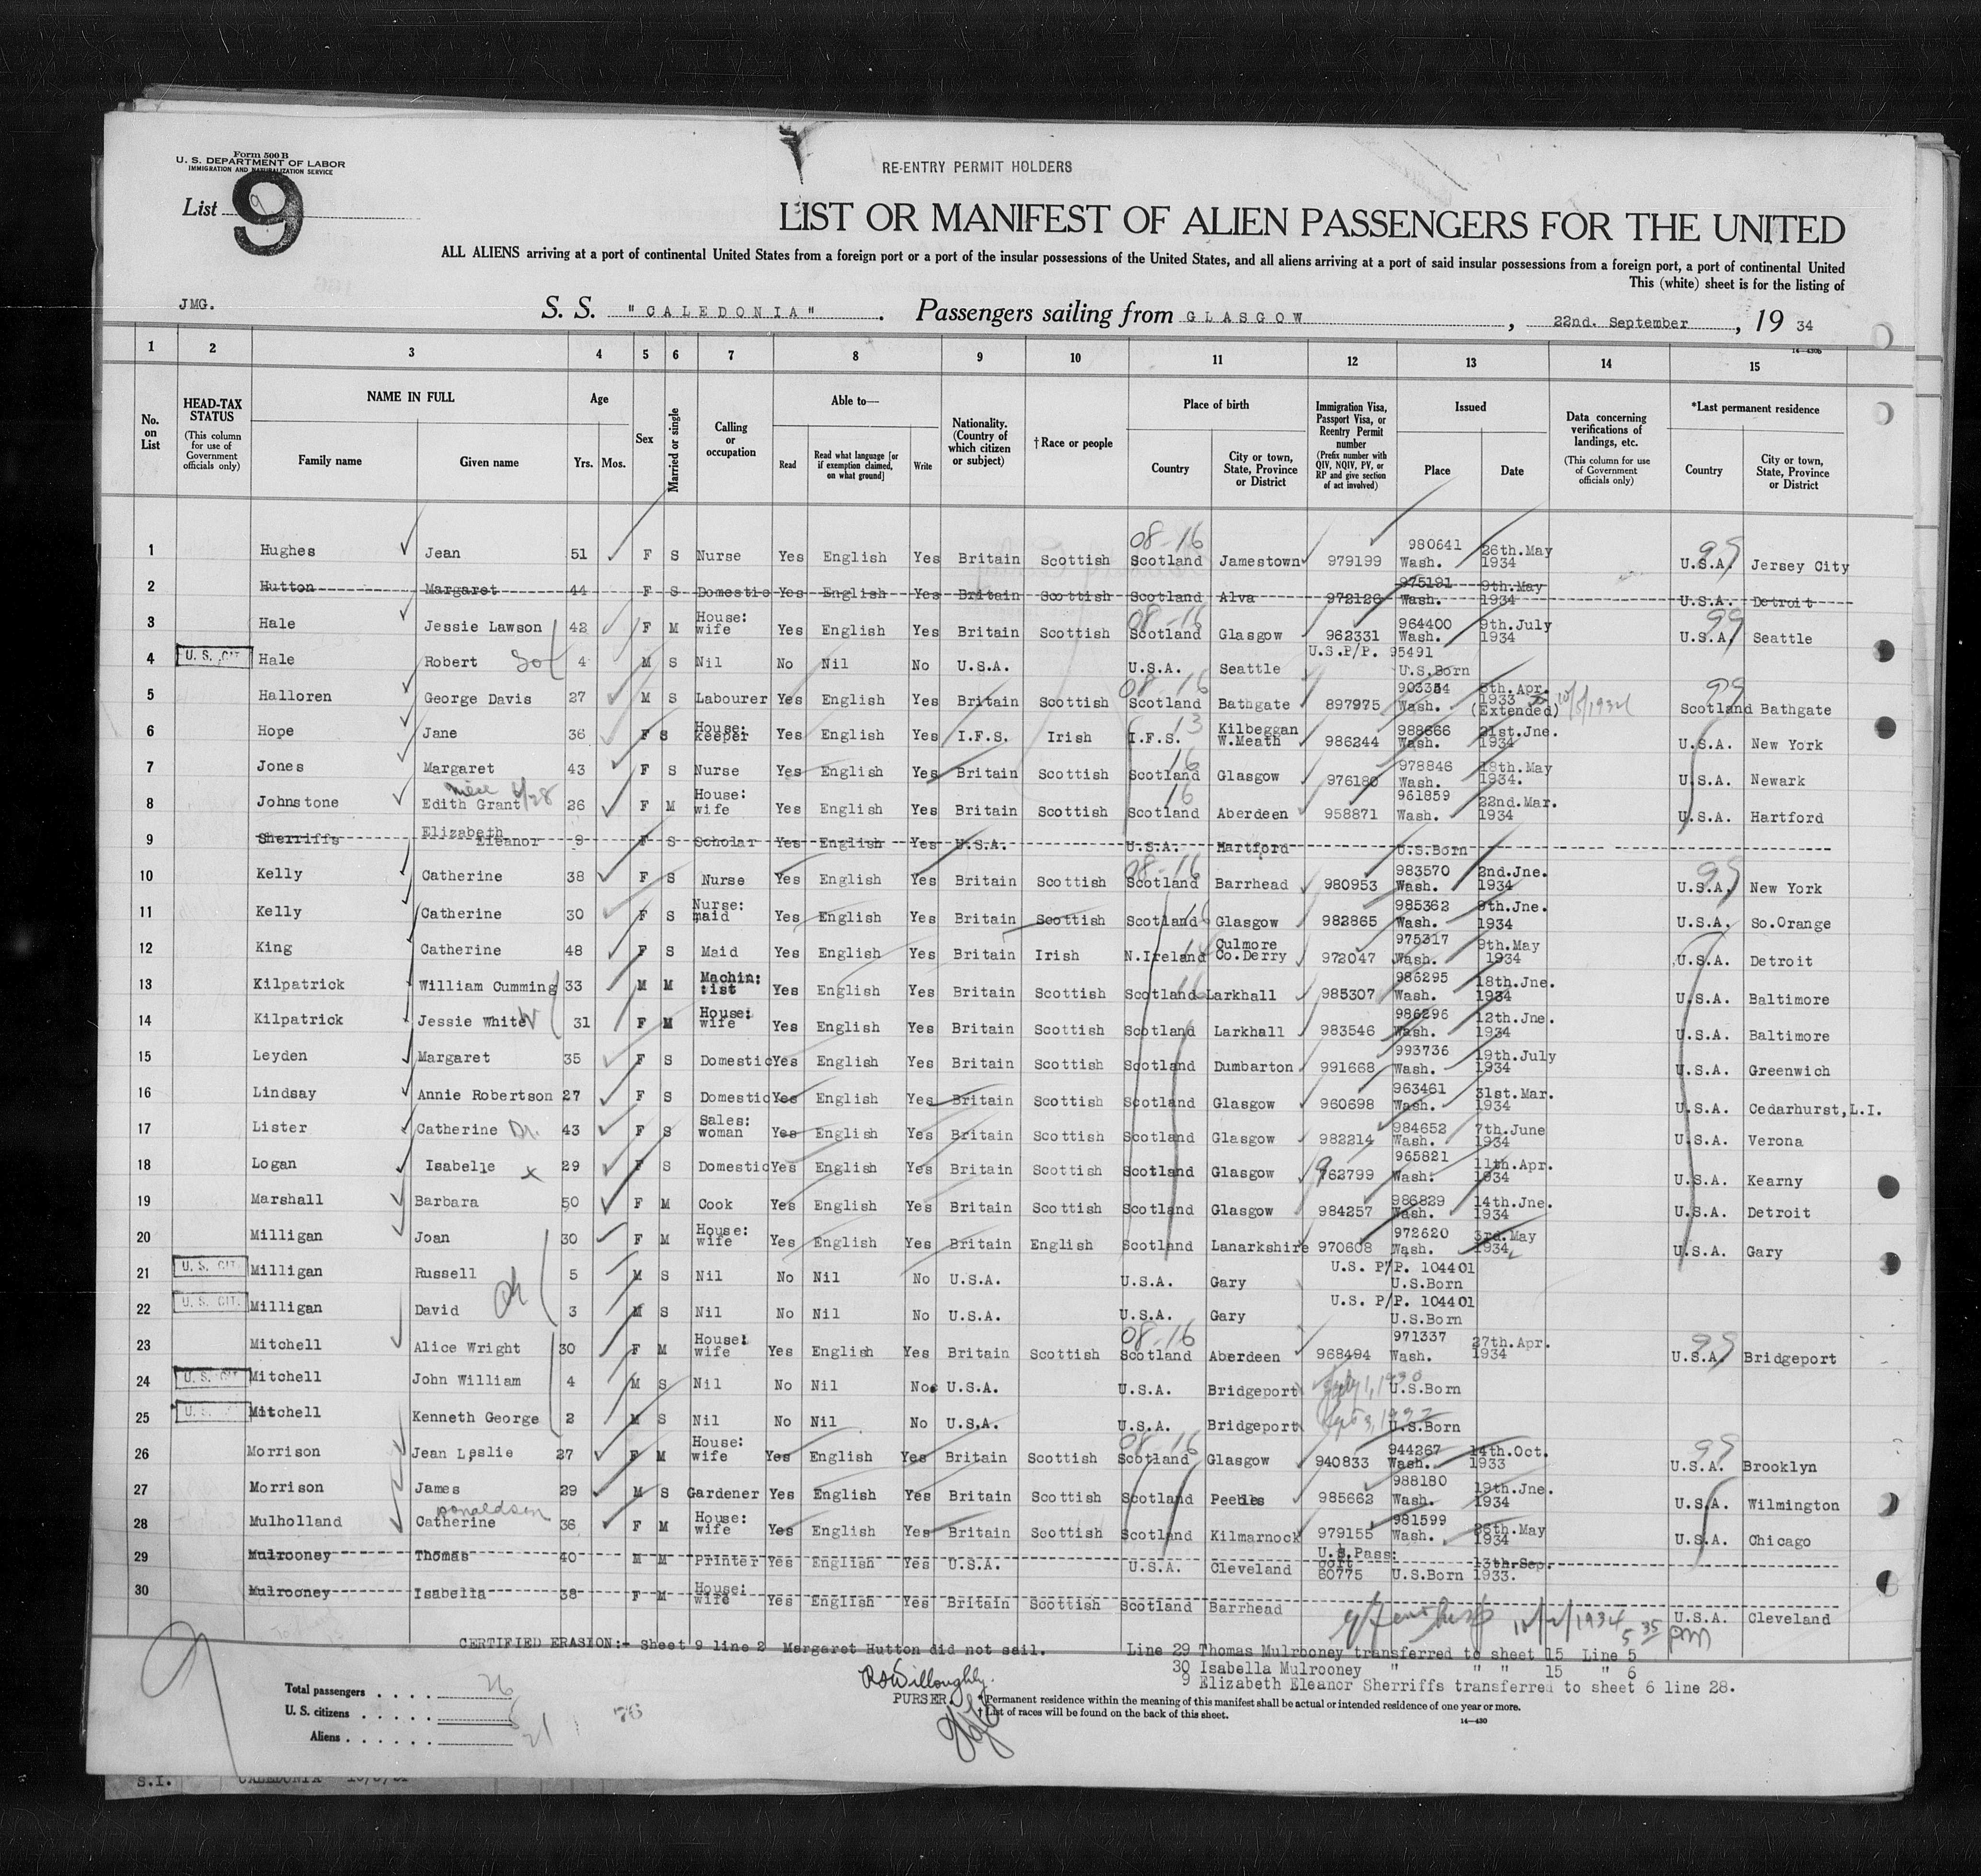 Form 500 B
U. S. DEPARTMENT OF LABOR
IMMIGRATION AND NATURALIZATION SERVICE
RE-ENTRY PERMIT HOLDERS
List 9
9
LIST OR MANIFEST OF ALIEN PASSENGERS FOR THE UNITED
ALL ALIENS arriving at a port of continental United States from a foreign port or a port of the insular possessions of the United States, and all aliens arriving at a port of said insular possessions from a foreign port, a port of continental United
This (white) sheet is for the listing of
JMG. S. S. "CALEDONIA". Passengers sailing from GLASGOW, 22nd. September, 19 34
14—430b
1 2 3 4 5 6 7 8 9 10 11 12 13 14 15
No. on List
HEAD-TAX STATUS (This column for use of Government officials only)
NAME IN FULL Family name Given name
Age Yrs. Mos.
Sex
Married or single
Calling or occupation
Able to— Read Read what language [or if exemption claimed, on what ground] Write
Nationality. (Country of which citizen or subject)
†Race or people
Place of birth Country City or town, State, Province or District
Immigration Visa, Passport Visa, or Reentry Permit number (Prefix number with QIV, NQIV, PV, or RP and give section of act involved)
Issued Place Date
Data concerning verifications of landings, etc. (This column for use of Government officials only)
*Last permanent residence Country City or town, State, Province or District
08-16
1 Hughes Jean 51 F S Nurse Yes English Yes Britain Scottish Scotland Jamestown 979199 980641 Wash. 26th.May 1934 99 U.S.A. Jersey City
2 Hutton Margaret 44 F S Domestic Yes English Yes Britain Scottish Scotland Alva 972126 975191 Wash. 9th.May 1934 U.S.A. Detroit
08-16
3 Hale Jessie Lawson 42 F M House:wife Yes English Yes Britain Scottish Scotland Glasgow 962331 964400 Wash. 9th.July 1934 99 U.S.A. Seattle
4 U.S. CIT. Hale Robert 4 M S Nil No Nil No U.S.A. U.S.A. Seattle U.S.P/P. 95491 U.S.Born
08-16
5 Halloren George Davis 27 M S Labourer Yes English Yes Britain Scottish Scotland Bathgate 897975 Wash. 8th.Apr. 1933 (Extended) 99 Scotland Bathgate
6 Hope Jane 36 F S House:keeper Yes English Yes I.F.S. Irish I.F.S. 13 Kilbeggan W.Meath 986244 988666 Wash. 21st.Jne. 1934 U.S.A. New York
7 Jones Margaret 43 F S Nurse Yes English Yes Britain Scottish Scotland 16 Glasgow 976180 978846 Wash. 18th.May 1934. U.S.A. Newark
niece 6/28
8 Johnstone Edith Grant 26 F M House:wife Yes English Yes Britain Scottish Scotland 16 Aberdeen 958871 961859 Wash. 22nd.Mar. 1934 U.S.A. Hartford
9 Sherriffs Elizabeth Eleanor 9 F S Scholar Yes English Yes U.S.A. U.S.A. Hartford U.S.Born
08-16
10 Kelly Catherine 38 F S Nurse Yes English Yes Britain Scottish Scotland Barrhead 980953 983570 Wash. 2nd.Jne. 1934 99 U.S.A. New York
11 Kelly Catherine 30 F S Nurse:maid Yes English Yes Britain Scottish Scotland 16 Glasgow 982865 985362 Wash. 9th.Jne. 1934 U.S.A. So.Orange
12 King Catherine 48 F S Maid Yes English Yes Britain Irish N.Ireland Culmore Co.Derry 972047 975317 Wash. 9th.May 1934 U.S.A. Detroit
13 Kilpatrick William Cumming 33 M M Machin::ist Yes English Yes Britain Scottish Scotland Larkhall 985307 986295 Wash. 18th.Jne. 1934 U.S.A. Baltimore
14 Kilpatrick Jessie White W 31 F M House:wife Yes English Yes Britain Scottish Scotland Larkhall 983546 986296 Wash. 12th.Jne. 1934 U.S.A. Baltimore
15 Leyden Margaret 35 F S Domestic Yes English Yes Britain Scottish Scotland Dumbarton 991668 993736 Wash. 19th.July 1934 U.S.A. Greenwich
16 Lindsay Annie Robertson 27 F S Domestic Yes English Yes Britain Scottish Scotland Glasgow 960698 963461 Wash. 31st.Mar. 1934 U.S.A. Cedarhurst,L.I.
17 Lister Catherine 43 F S Sales:woman Yes English Yes Britain Scottish Scotland Glasgow 982214 984652 Wash. 7th.June 1934 U.S.A. Verona
18 Logan Isabelle x 29 F S Domestic Yes English Yes Britain Scottish Scotland Glasgow 962799 965821 Wash. 11th.Apr. 1934 U.S.A. Kearny
19 Marshall Barbara 50 F M Cook Yes English Yes Britain Scottish Scotland Glasgow 984257 986829 Wash. 14th.Jne. 1934 U.S.A. Detroit
20 Milligan Joan 30 F M House:wife Yes English Yes Britain English Scotland Lanarkshire 970608 972620 Wash. 3rd.May 1934 U.S.A. Gary
21 U.S. CIT. Milligan Russell 5 M S Nil No Nil No U.S.A. U.S.A. Gary U.S. P/P. 104401 U.S.Born
22 U.S. CIT. Milligan David 3 M S Nil No Nil No U.S.A. U.S.A. Gary U.S. P/P. 104401 U.S.Born
08-16
23 Mitchell Alice Wright 30 F M House:wife Yes English Yes Britain Scottish Scotland Aberdeen 968494 971337 Wash. 27th.Apr. 1934 99 U.S.A. Bridgeport
24 U.S. CIT Mitchell John William 4 M S Nil No Nil No U.S.A. U.S.A. Bridgeport July 1, 1930 U.S.Born
25 U.S. Mitchell Kenneth George 2 M S Nil No Nil No U.S.A. U.S.A. Bridgeport U.S.Born
08-16
26 Morrison Jean Leslie 27 F M House:wife Yes English Yes Britain Scottish Scotland Glasgow 940833 944267 Wash. 14th.Oct. 1933 99 U.S.A. Brooklyn
27 Morrison James 29 M S Gardener Yes English Yes Britain Scottish Scotland Peebles 985662 988180 Wash. 19th.Jne. 1934 U.S.A. Wilmington
Donaldson
28 Mulholland Catherine 36 F M House:wife Yes English Yes Britain Scottish Scotland Kilmarnock 979155 981599 Wash. 26th.May 1934 U.S.A. Chicago
29 Mulrooney Thomas 40 M M Printer Yes English Yes U.S.A. U.S.A. Cleveland U.S.Pass:port 60775 U.S.Born 13th.Sep. 1933.
30 Mulrooney Isabella 38 F M House:wife Yes English Yes Britain Scottish Scotland Barrhead U.S.A. Cleveland
5 35 PM
CERTIFIED ERASION:- Sheet 9 line 2 Margaret Hutton did not sail. Line 29 Thomas Mulrooney transferred to sheet 15 Line 5
30 Isabella Mulrooney " " " 15 " 6
9 Elizabeth Eleanor Sherriffs transferred to sheet 6 line 28.
RSWilloughby.
PURSER.
Total passengers 26
U. S. citizens 5
Aliens 21
76
*Permanent residence within the meaning of this manifest shall be actual or intended residence of one year or more.
† List of races will be found on the back of this sheet.
14—430
S.I. CALEDONIA